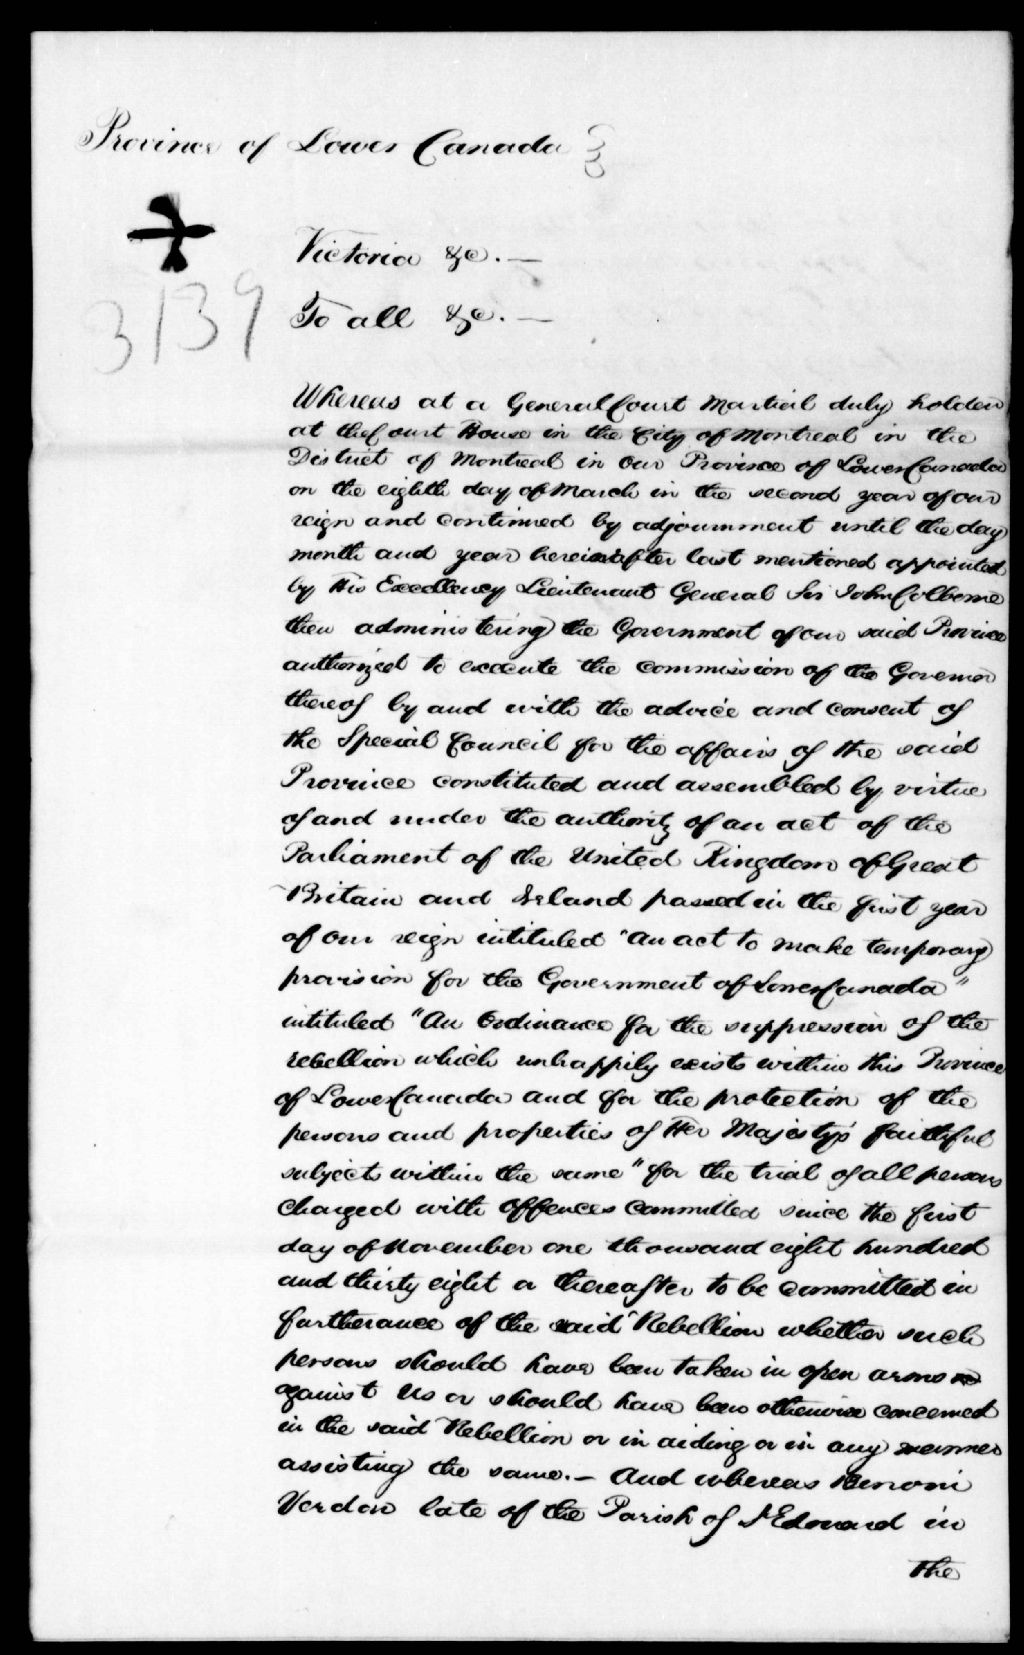 Province of Lower Canada
Victoria &c. —
3139
To all &c. —
Whereas at a General Court Martial duly holden
at the Court House in the City of Montreal in the
District of Montreal in our Province of Lower Canada
on the eighth day of March in the second year of our
reign and continued by adjournment until the day
month and year hereinafter last mentioned appointed
by His Excellency Lieutenant General Sir John Colborne
then administering the Government of our said Province
authorized to execute the commission of the Governor
thereof by and with the advice and consent of
the Special Council for the affairs of the said
Province constituted and assembled by virtue
of and under the authority of an act of the
Parliament of the United Kingdom of Great
Britain and Ireland passed in the first year
of our reign intituled "An act to make temporary
provision for the Government of Lower Canada"
intituled "An Ordinance for the suppression of the
rebellion which unhappily exists within this Province
of Lower Canada and for the protection of the
persons and properties of Her Majesty's faithful
subjects within the same" for the trial of all persons
charged with offences committed since the first
day of November one thousand eight hundred
and thirty eight or thereafter to be committed in
furtherance of the said Rebellion whether such
persons should have been taken in open arms
against Us or should have been otherwise concerned
in the said Rebellion or in aiding or in any manner
assisting the same. — And whereas Benoni
Verdon late of the Parish of St Edward in
the